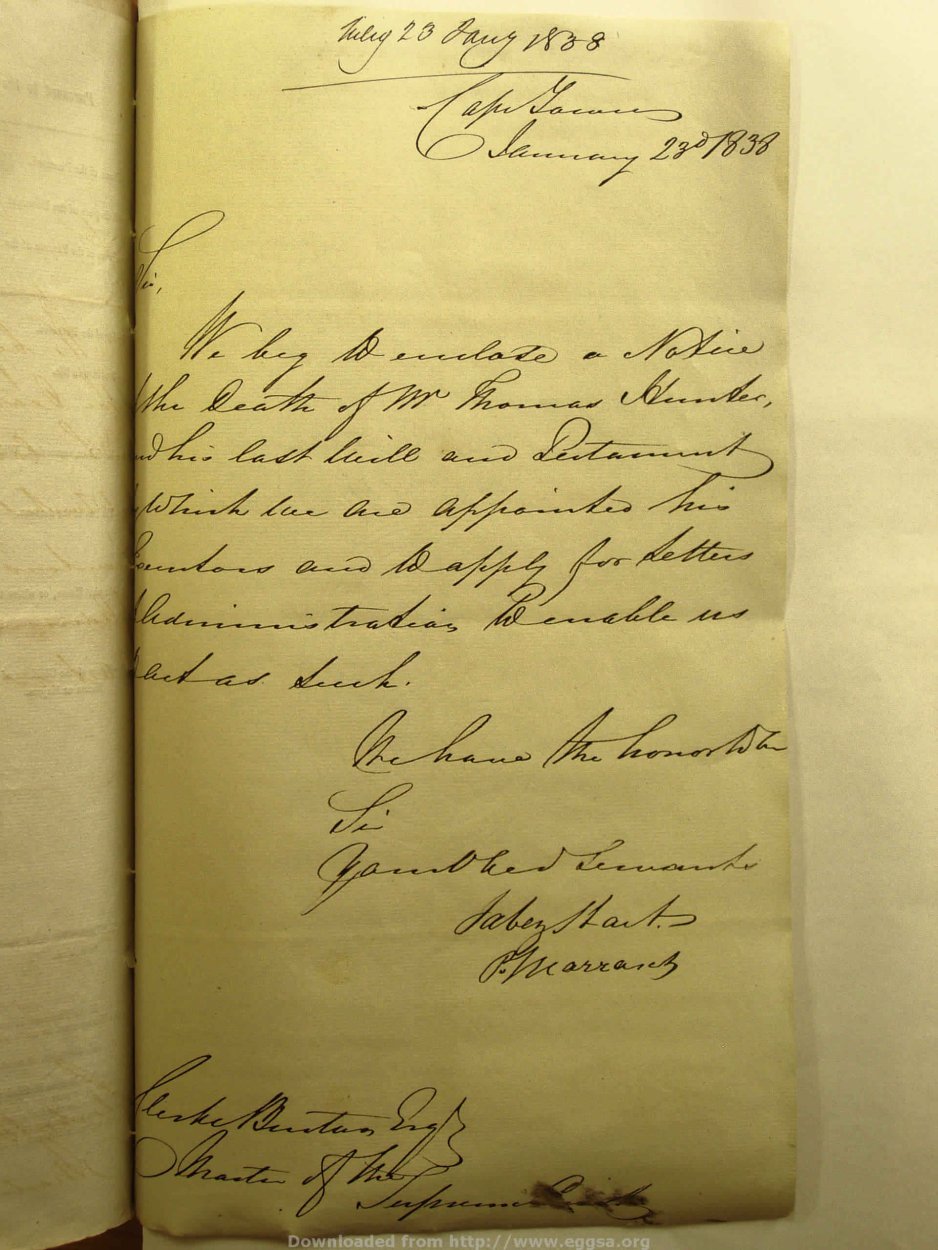 23 Jany 1838
Cape Town
January 23d 1838
Sir,
We beg to enclose a Notice
of the Death of Mr Thomas Hunter,
and his last Will and Testament
by which we are appointed his
Executors and to apply for Letters
of Administration to enable us
to act as such.
We have the honor to be
Sir
Your Obed Servants
Jabez Hart.
Clerke Burton Esqr
Master of the
Supreme Court
Downloaded from http://www.eggsa.org